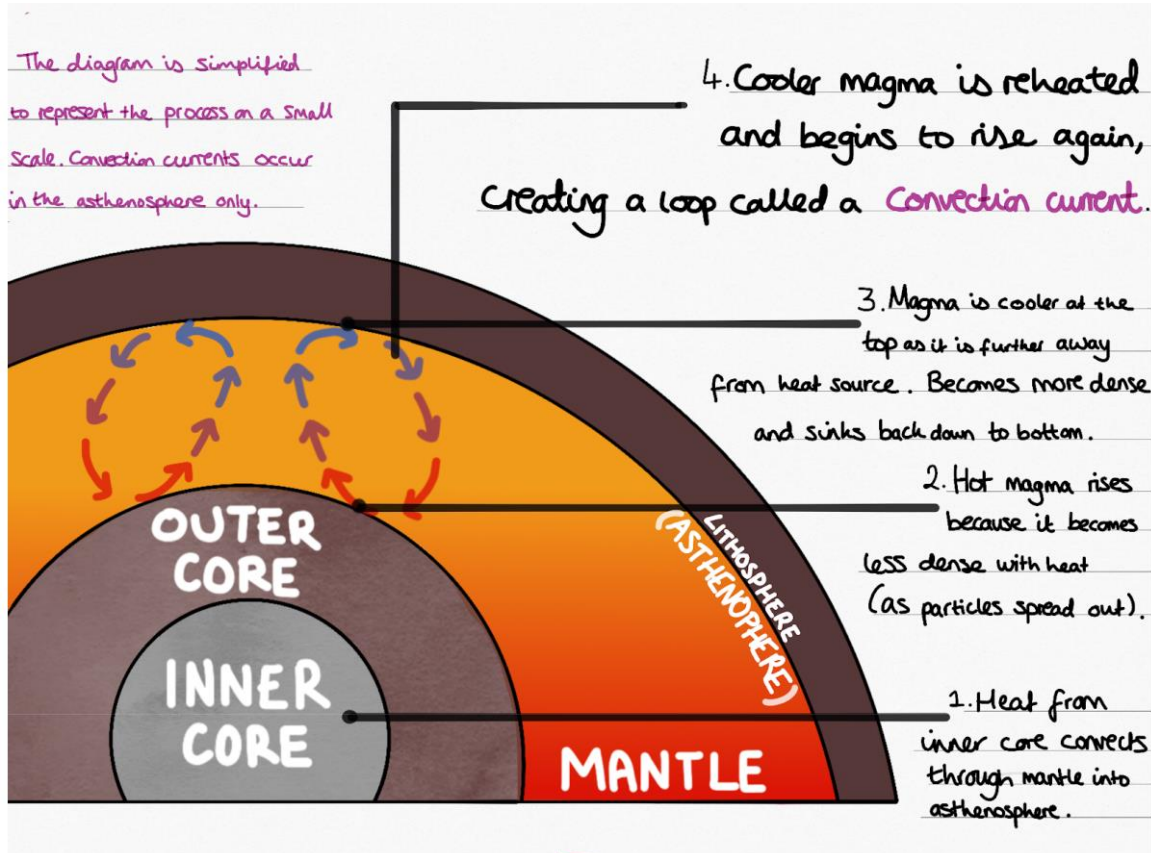 The diagram is simplified
to represent the process on a small
scale. Convection currents occur
in the asthenosphere only.
4. Cooler magma is reheated
and begins to rise again,
creating a loop called a Convection current.
3. Magma is cooler at the
top as it is further away
from heat source. Becomes more dense
and sinks back down to bottom.
2. Hot magma rises
because it becomes
less dense with heat
(as particles spread out).
1. Heat from
inner core convects
through mantle into
asthenosphere.
OUTER
CORE
INNER
CORE
MANTLE
LITHOSPHERE
(ASTHENOPHERE)